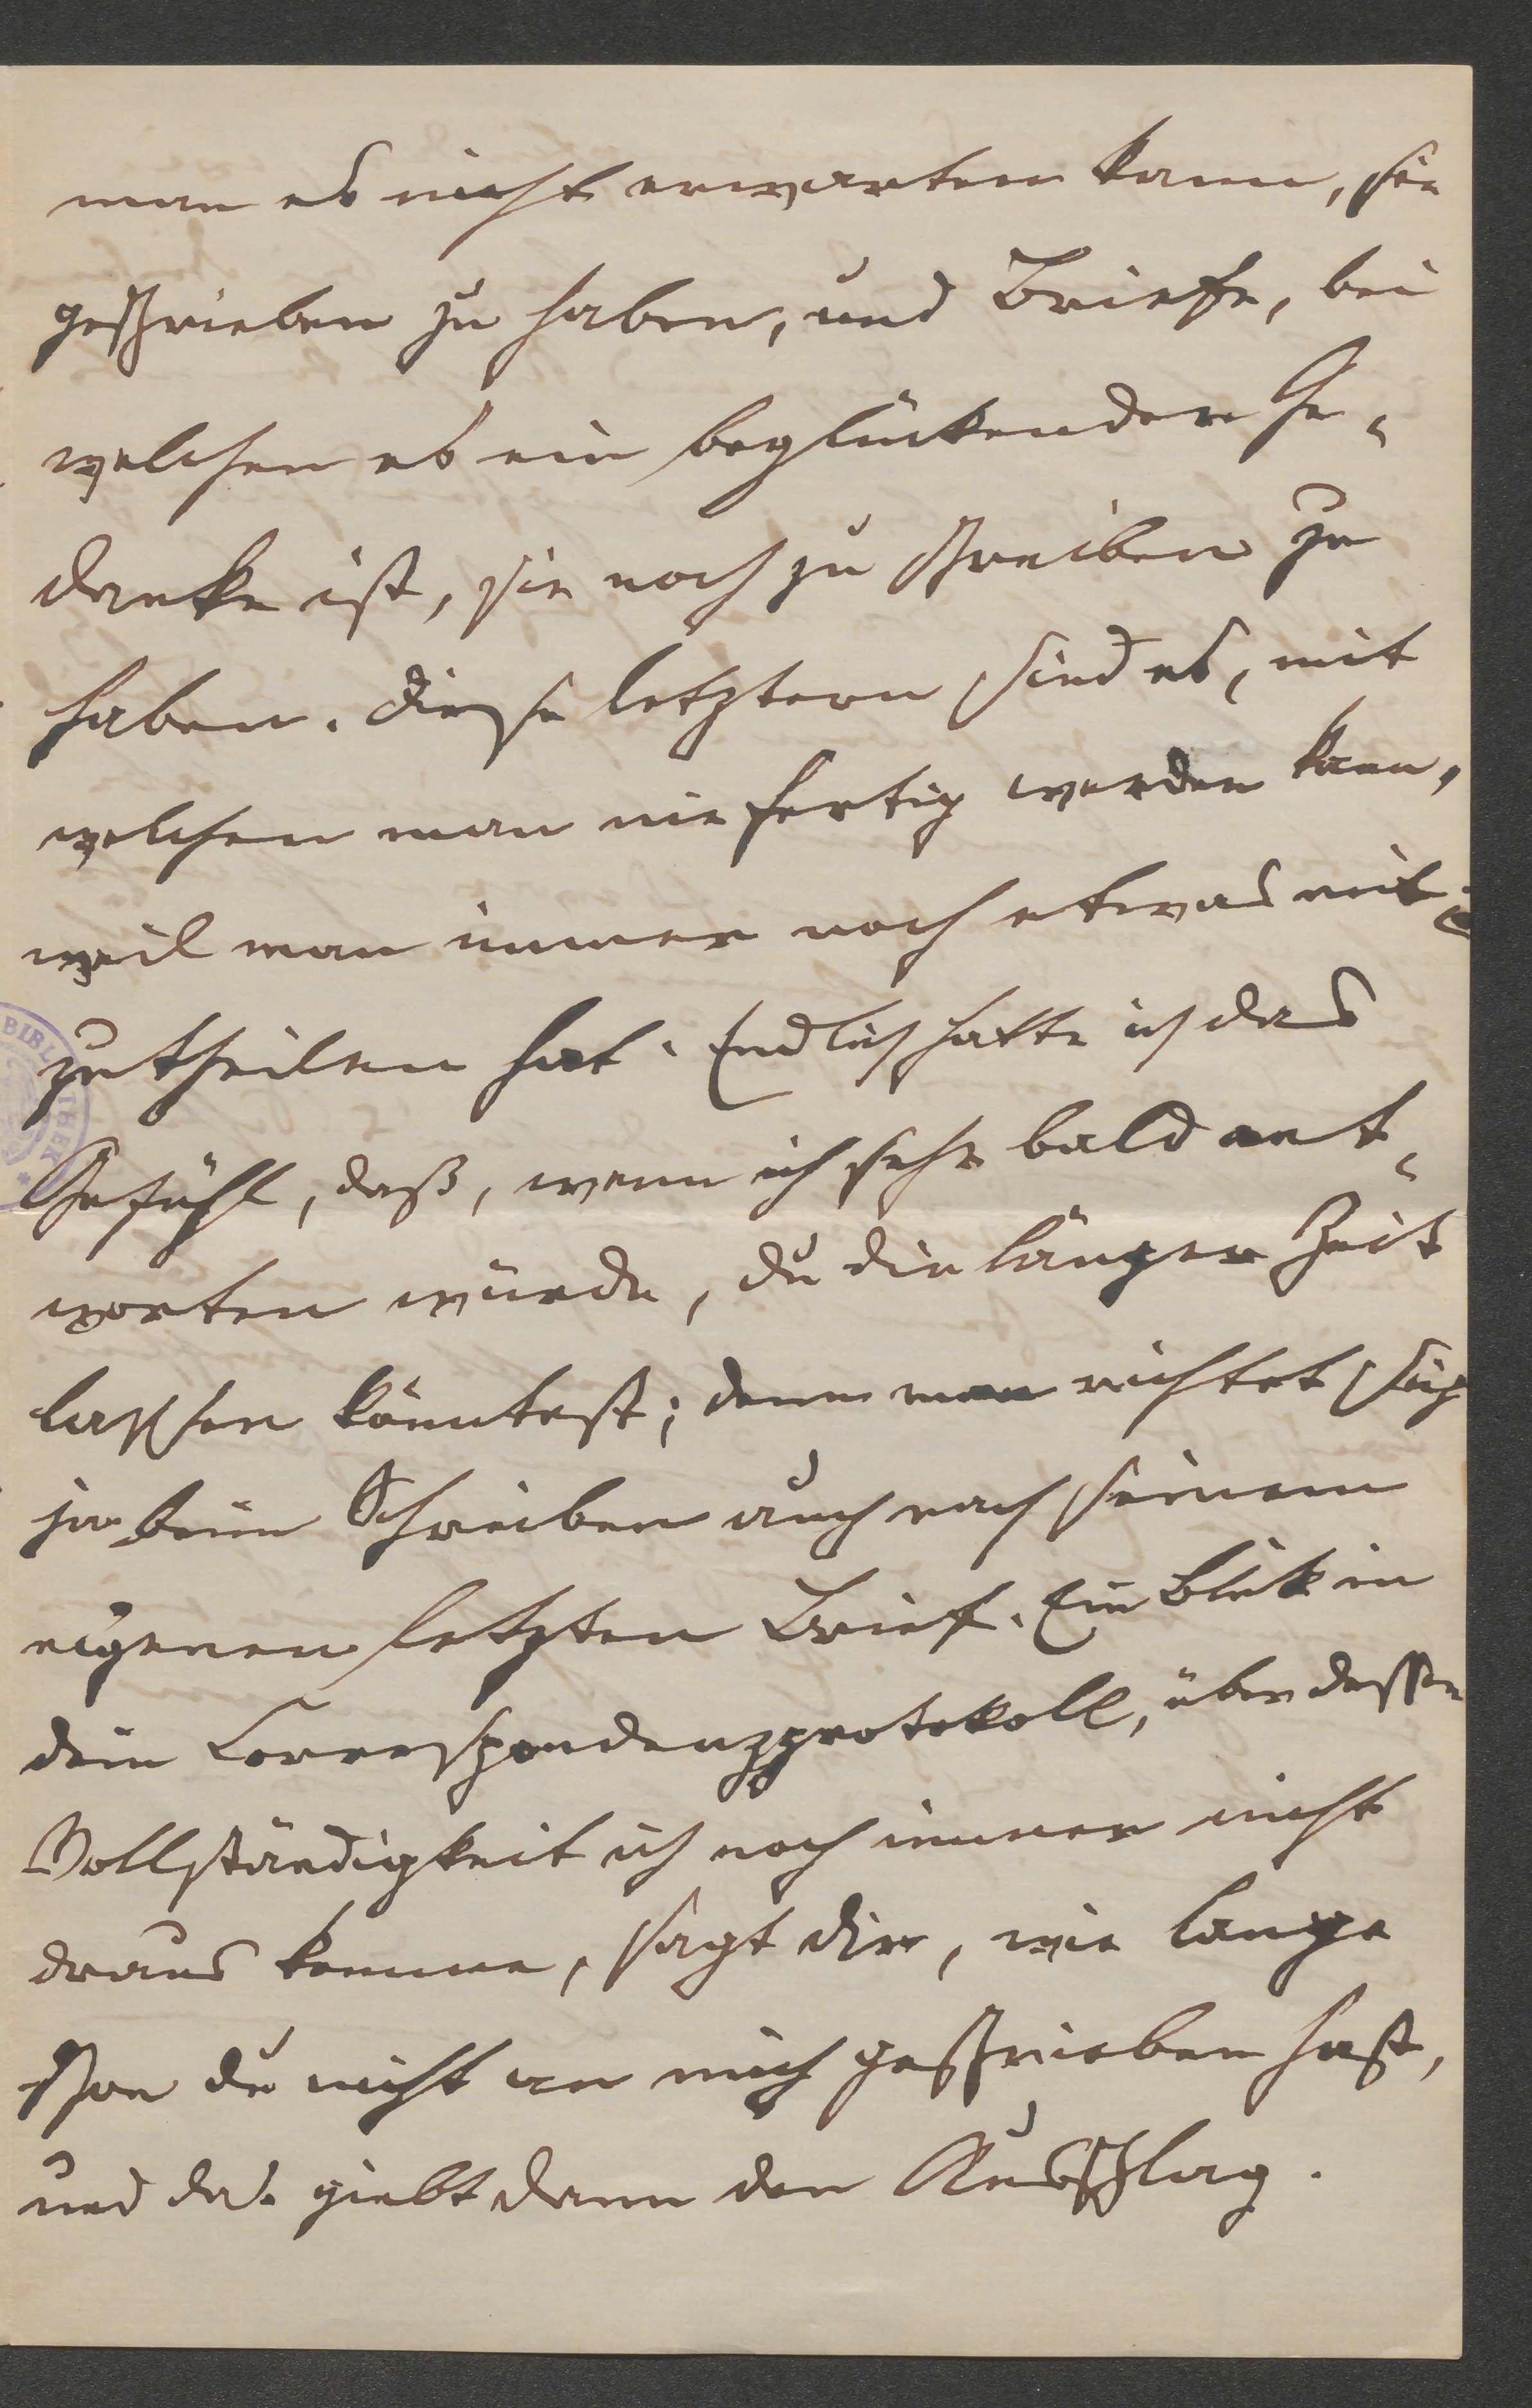 man es nicht erwarten kann, sie
geschrieben zu haben, und Briefe, bei
welchen es ein beglückender Ge-
danke ist, sie noch zu schreiben zu
haben. Diese letztern sind es, mit
welchen man nie fertig werden kann,
weil man immer noch etwas mit-
zutheilen hat. Endlich hatte ich das
Gefühl, daß, wenn ich sehr bald ant-
worten würde, du dir länger Zeit
lassen könntest; denn man richtet sich
ja beim Schreiben auch nach seinem
eigenen letzten Brief. Ein Blick in
dein Correspondenzprotokoll, über dessen
Vollständigkeit ich noch immer nicht
draus komme, sagt dir, wie lange
schon du nicht an mich geschrieben hast,
und das giebt dann den Ausschlag.
BIBLIOTHEK